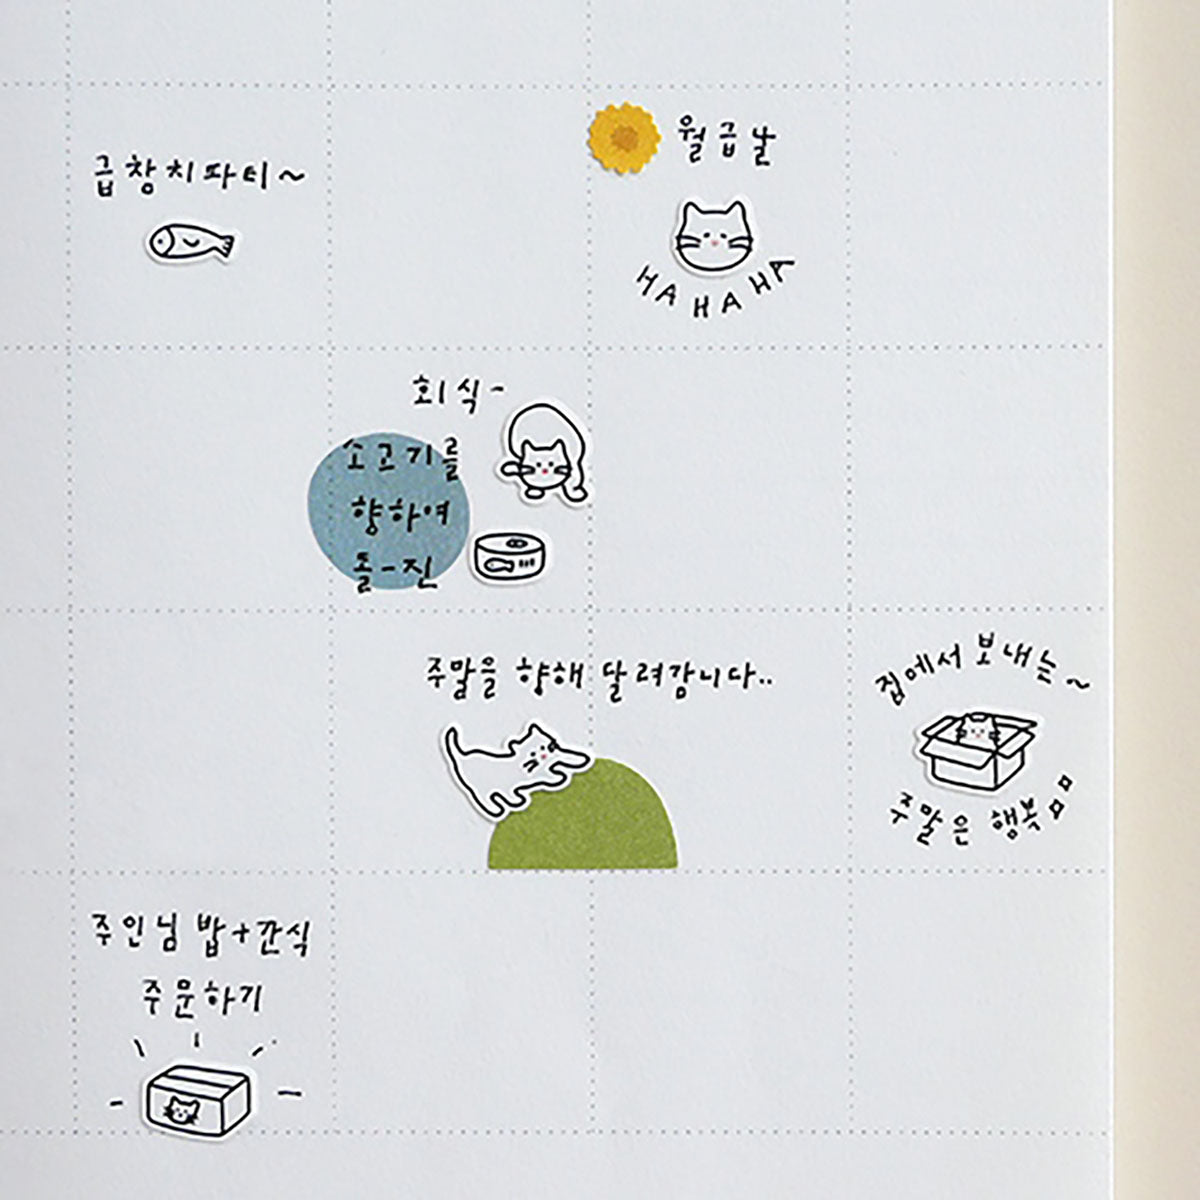 급창치파티~
월급날
HA HA HA
회식-
소고기를
향하여
돌-진
주말을 향해 달려갑니다..
집에서 보내는~
주말은 행복
주인님 밥+간식
주문하기